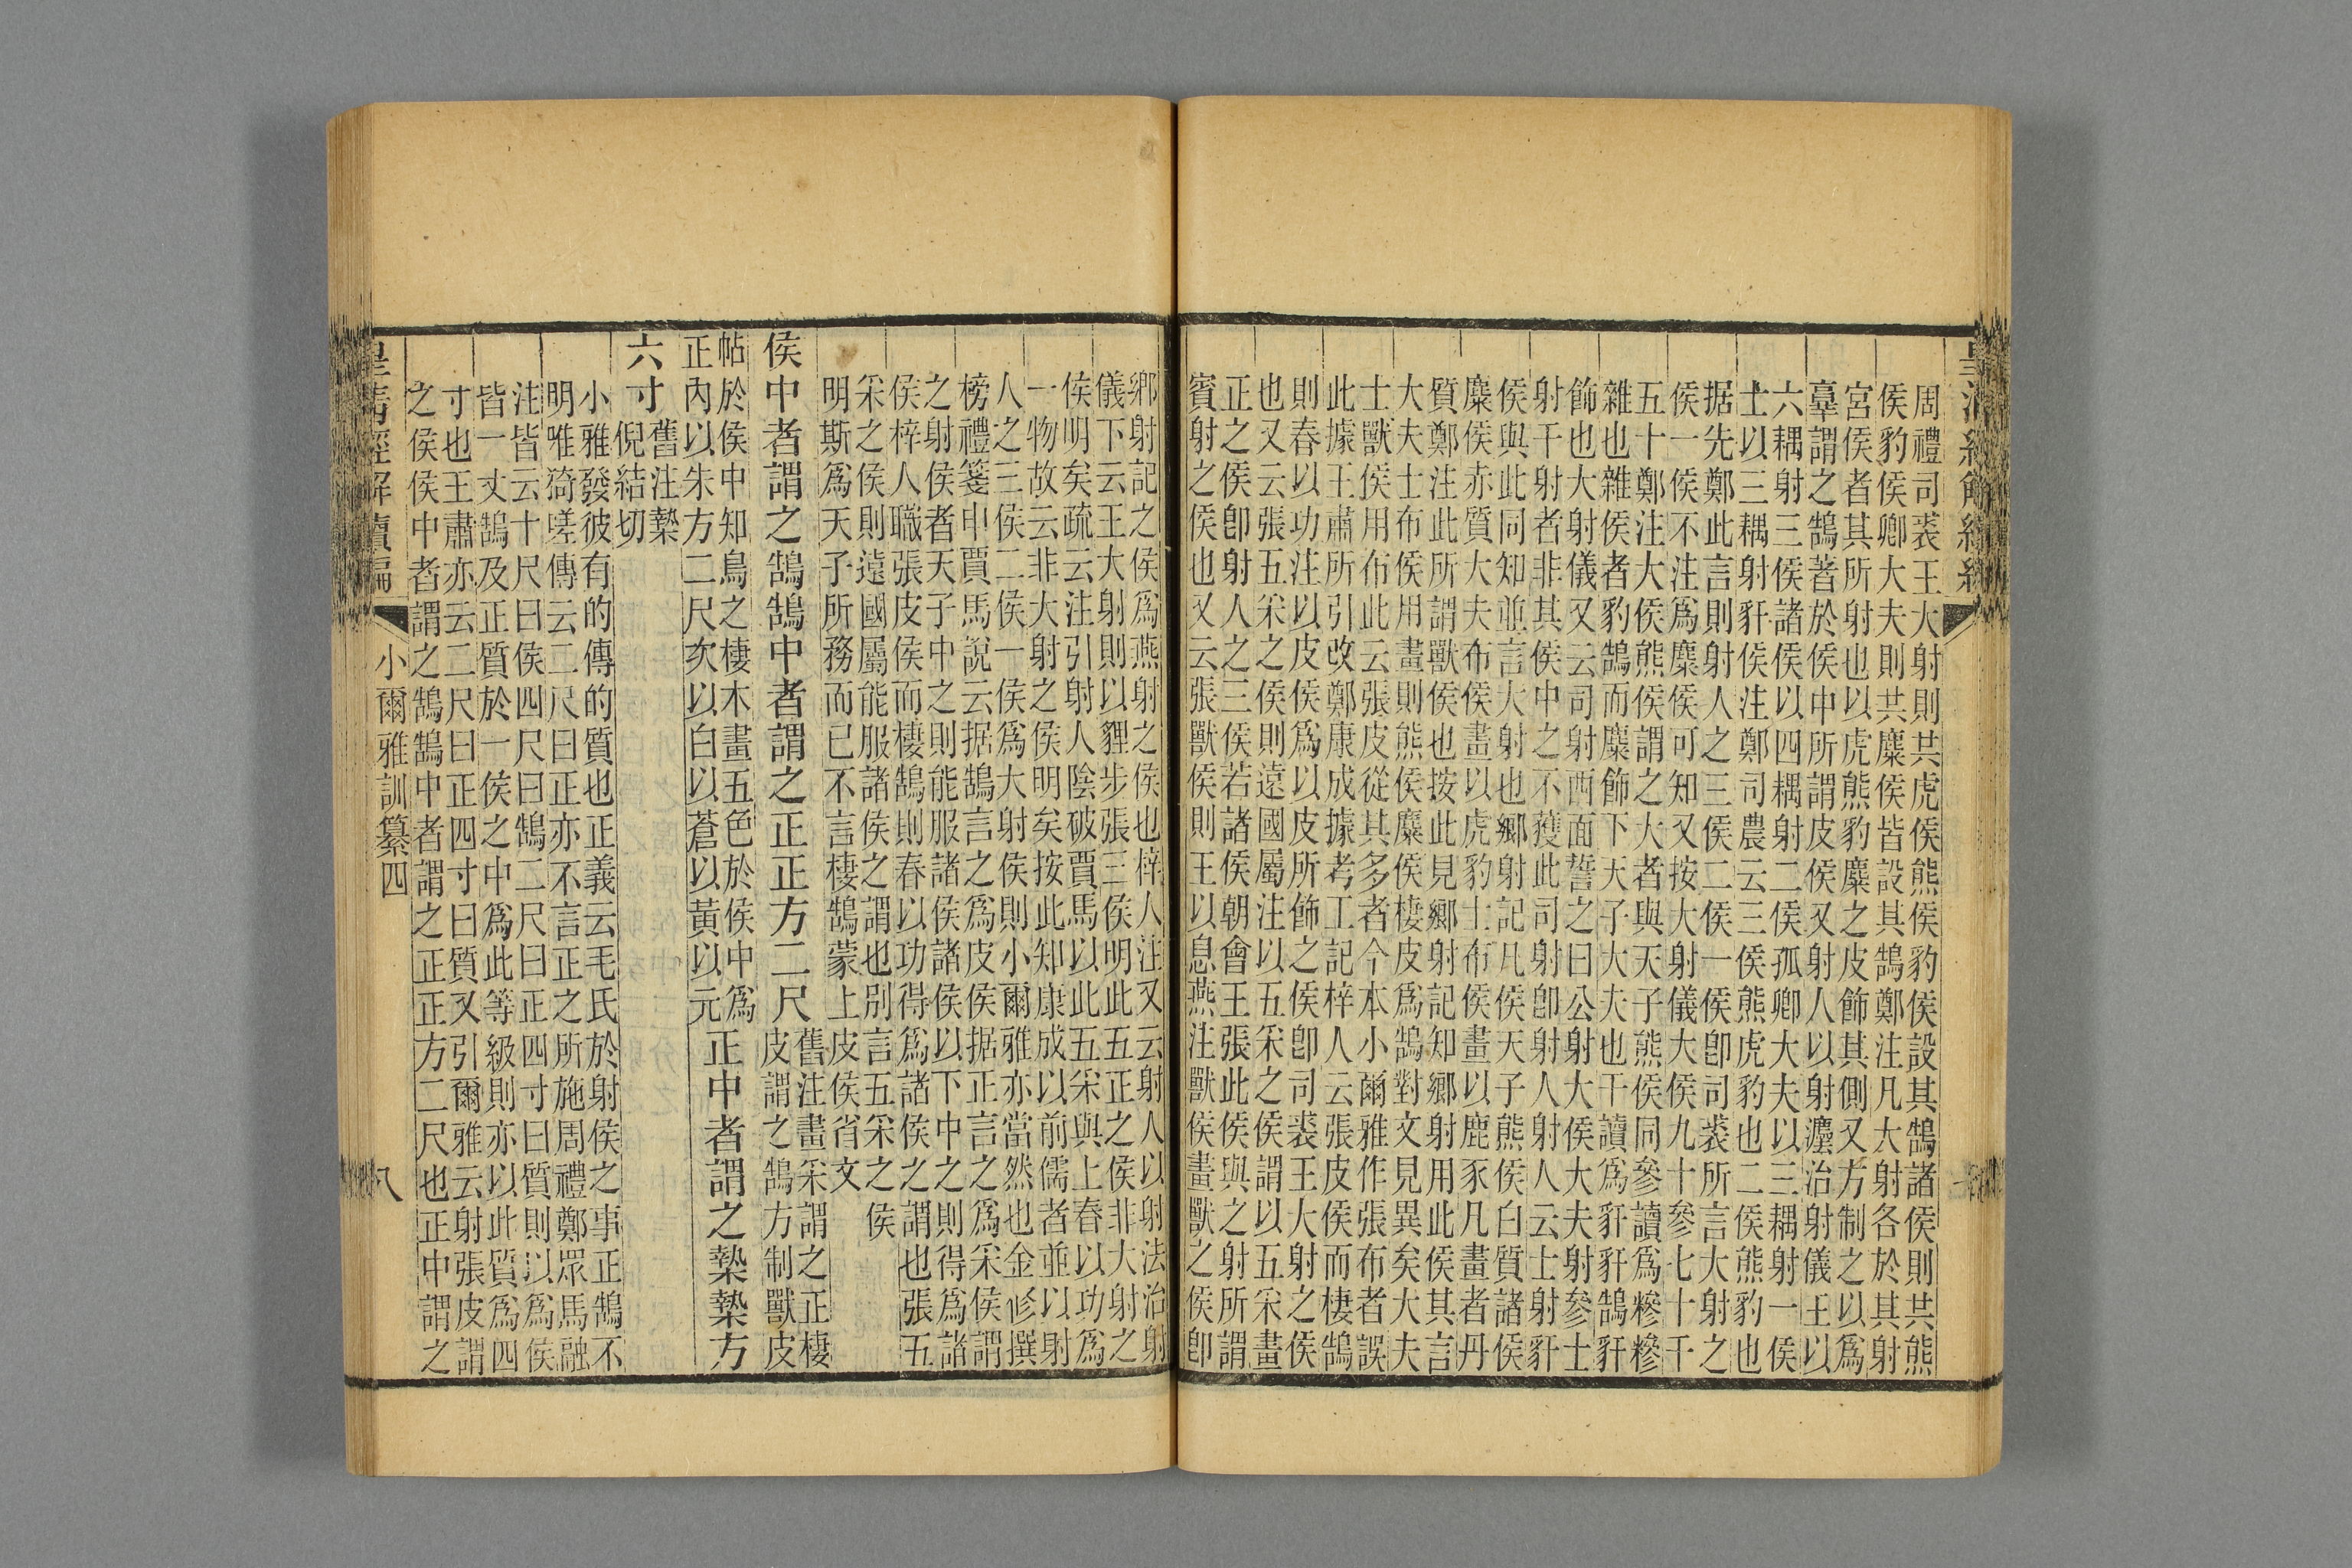 周禮司裘王大射則共虎侯熊侯豹侯設其鵠諸侯則共熊
侯豹侯卿大夫則共麋侯皆設其鵠鄭注凡大射各於其射
宮侯者其所射也以虎熊豹麋之皮飾其側又方制之以爲
臯謂之鵠著於侯中所謂皮侯又射人以射灋治射儀王以
六耦射三侯諸侯以四耦射二侯孤卿大夫以三耦射一侯
士以三耦射豻侯注鄭司農云三侯熊虎豹也二侯熊豹也
据先鄭此言則射人之三侯二侯一侯卽司裘所言大射之
侯一侯不注爲麋侯可知又按大射儀大侯九十參七十干
五十鄭注大侯熊侯謂之大者與天子熊侯同參讀爲糝糝
雜也雜侯者豹鵠而麋飾下天子大夫也干讀爲豻豻鵠豻
飾也大射儀又云司射西面誓之曰公射大侯大夫射參士
射干射者非其侯中之不獲此司射卽射人射人云士射豻
侯與此同知並言大射也鄉射記凡侯天子熊侯白質諸侯
麋侯赤質大夫布侯畫以虎豹士布侯畫以鹿豕凡畫者丹
質鄭注此所謂獸侯也按此見鄉射記知鄉射用此侯其言
大夫士布侯用畫則熊侯麋侯棲皮爲鵠對文見異矣大夫
士獸侯用布此云張皮從其多者今本小爾雅作張布者誤
此據王肅所引改鄭康成據考工記梓人云張皮侯而棲鵠
則春以功注以皮侯爲以皮所飾之侯卽司裘王大射之侯
也又云張五采之侯則遠國屬注以五采之侯謂以五采畫
正之侯卽射人之三侯若諸侯朝會王張此侯與之射所謂
賓射之侯也又云張獸侯則王以息燕注獸侯畫獸之侯卽
鄉射記之侯爲燕射之侯也梓人注又云射人以射法治射
儀下云王大射則以貍步張三侯明此五正之侯非大射之
侯明矣疏云注引射人陰破賈馬以此五采與上春以功爲
一物故云非大射之侯明矣按此知康成以前儒者並以射
人之三侯二侯一侯爲大射侯則小爾雅亦當然也金修撰
榜禮箋申賈馬說云据鵠言之爲皮侯据正言之爲采侯謂
之射侯者天子中之則能服諸侯諸侯以下中之則得爲諸
侯梓人職張皮侯而棲鵠則春以功得爲諸侯之謂也張五
采之侯則遠國屬能服諸侯之謂也別言五采之侯
明斯爲天子所務而已不言棲鵠蒙上皮侯省文
侯中者謂之鵠鵠中者謂之正正方二尺
舊注畫采謂之正棲
皮謂之鵠方制獸皮
帖於侯中知鳥之棲木畫五色於侯中爲
正內以朱方二尺次以白以蒼以黃以元
正中者謂之槷槷方
六寸
舊注槷
倪結切
小雅發彼有的傳的質也正義云毛氏於射侯之事正鵠不
明唯猗嗟傳云二尺曰正亦不言正之所施周禮鄭眾馬融
注皆云十尺曰侯四尺曰鵠二尺曰正四寸曰質則以爲侯
皆一丈鵠及正質於一侯之中爲此等級則亦以此質爲四
寸也王肅亦云二尺曰正四寸曰質又引爾雅云射張皮謂
之侯侯中者謂之鵠鵠中者謂之正正方二尺也正中謂之
小爾雅訓纂四
八